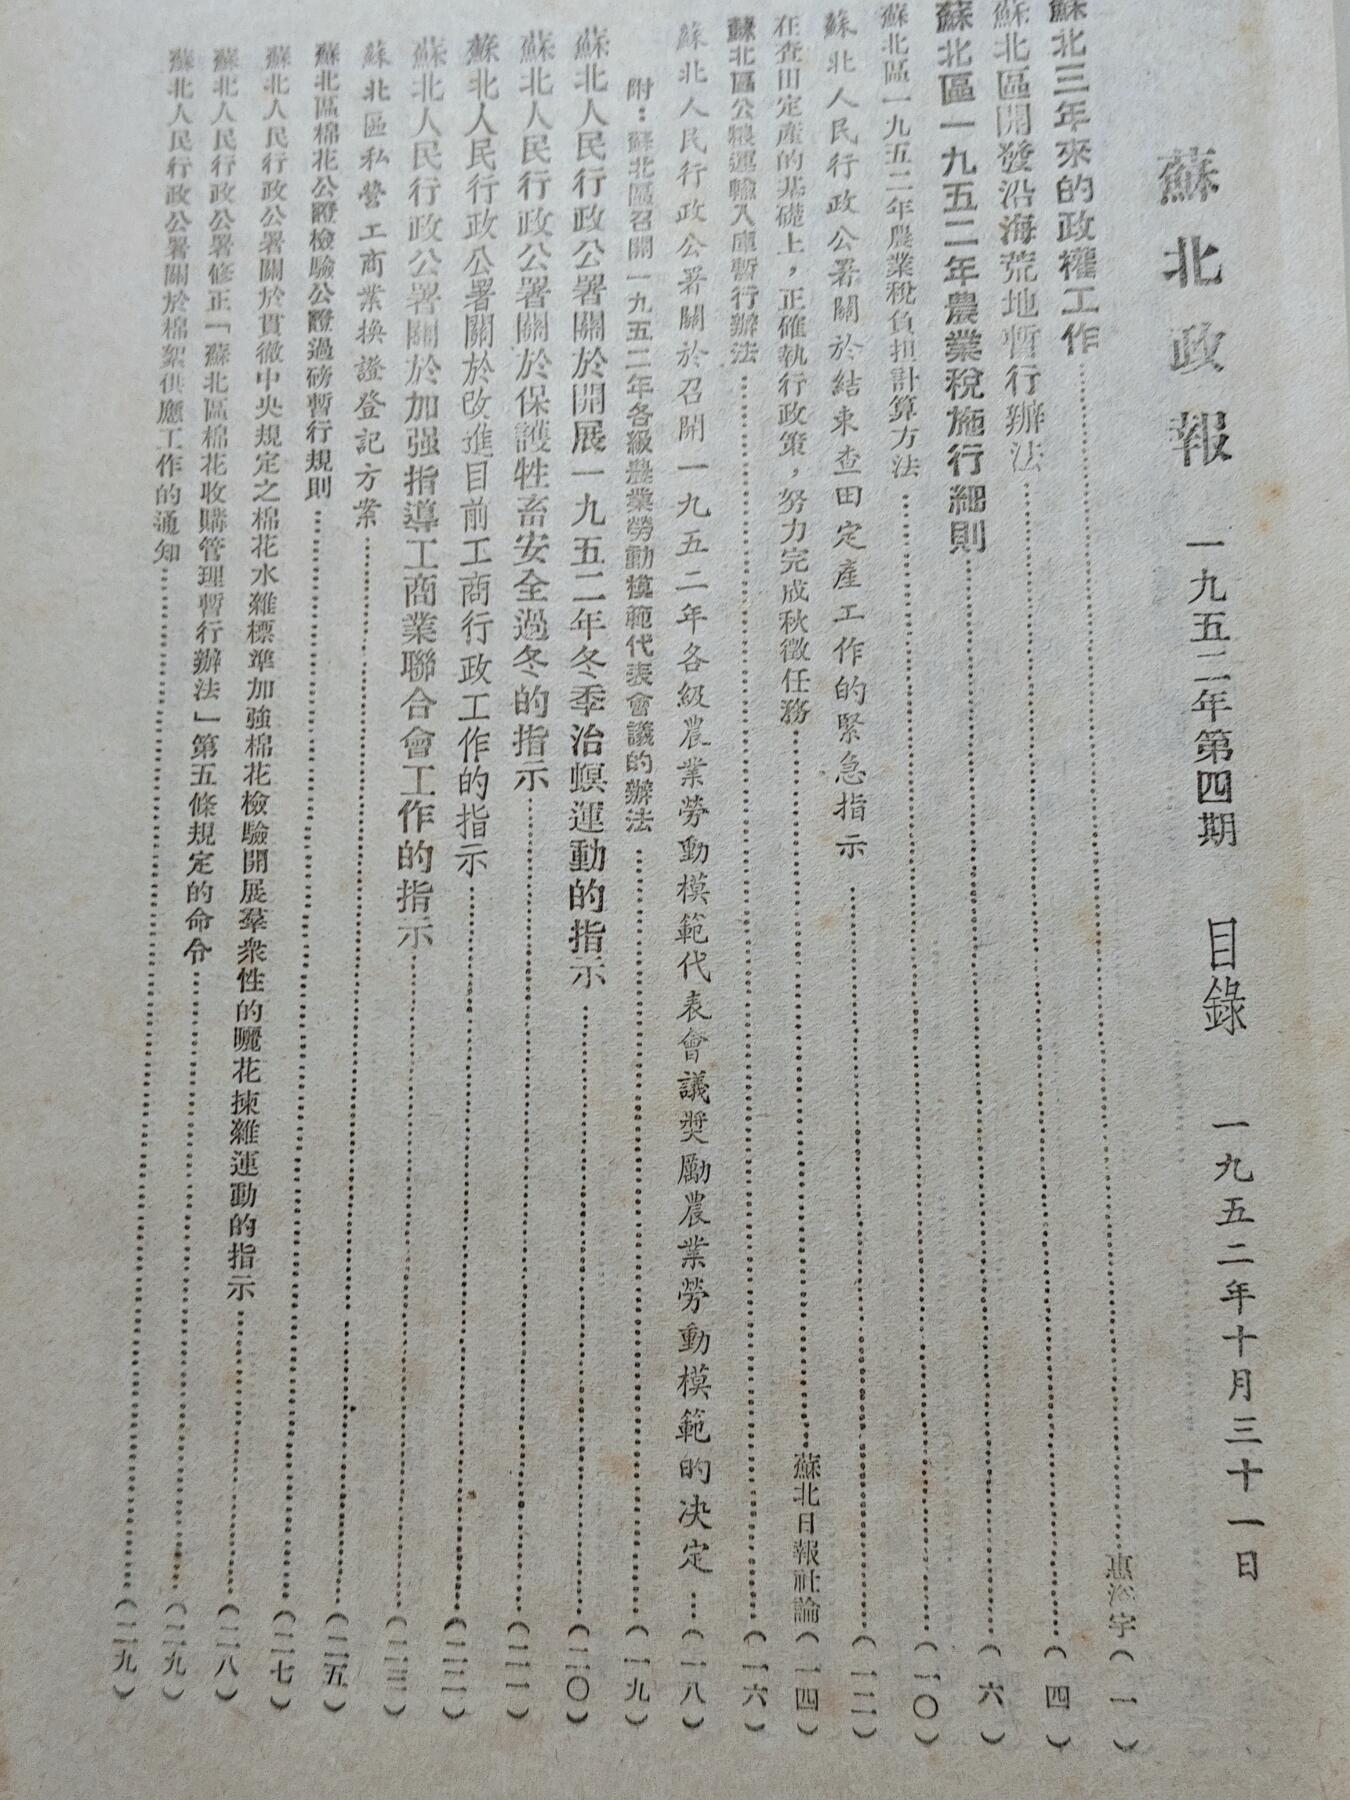 蘇北政報 一九五二年第四期 目錄 一九五二年十月三十一日
蘇北三年來的政權工作……惠浴宇（一）
蘇北區開發沿海荒地暫行辦法……（四）
蘇北區一九五二年農業稅施行細則……（六）
蘇北區一九五二年農業稅負担計算方法……（一〇）
蘇北人民行政公署關於結束查田定產工作的緊急指示……（一二）
在查田定產的基礎上，正確執行政策，努力完成秋徵任務……蘇北日報社論（一四）
蘇北區公糧運輸入庫暫行辦法……（一六）
蘇北人民行政公署關於召開一九五二年各級農業勞動模範代表會議獎勵農業勞動模範的决定……（一八）
附：蘇北區召開一九五二年各級農業勞動模範代表會議的辦法……（一九）
蘇北人民行政公署關於開展一九五二年冬季治螟運動的指示……（二〇）
蘇北人民行政公署關於保護牲畜安全過冬的指示……（二一）
蘇北人民行政公署關於改進目前工商行政工作的指示……（二二）
蘇北人民行政公署關於加强指導工商業聯合會工作的指示……（二三）
蘇北區私營工商業換證登記方案……（二五）
蘇北區棉花公證檢驗公證過磅暫行規則……（二七）
蘇北人民行政公署關於貫徹中央規定之棉花水雜標準加強棉花檢驗開展羣衆性的曬花揀雜運動的指示……（二八）
蘇北人民行政公署修正「蘇北區棉花收購管理暫行辦法」第五條規定的命令……（二九）
蘇北人民行政公署關於棉絮供應工作的通知……（二九）